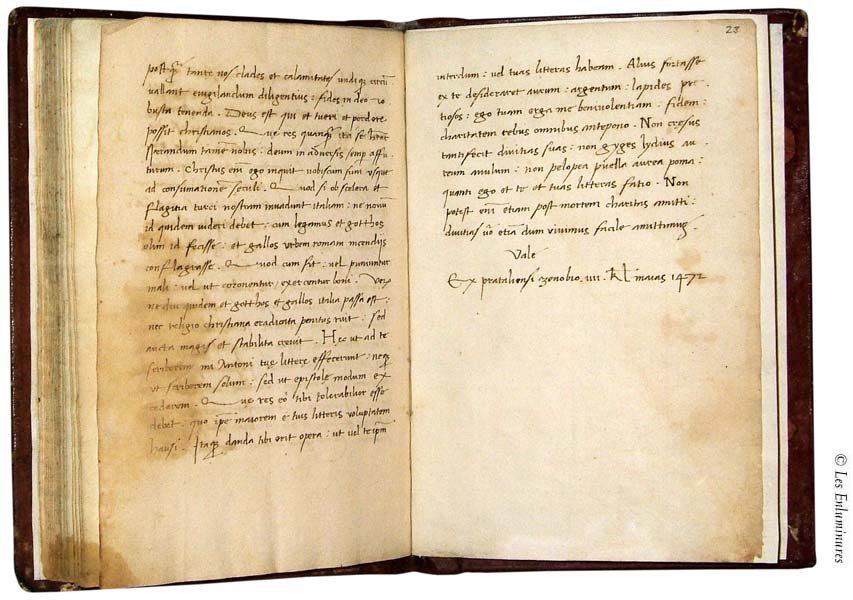 postq̃ tante nos clades et calamitates undiq; circũ
vallant evigilandum diligentius : fides in deo ro
busta tenenda . Deus est qui et tueri et perdere
possit christianos . Que res quanq̃ ita se
sperandum tamen nobis : deum in adversis semp affu
turum . Christus enĩ ego inquit vobiscum sum usque
ad consumationem seculi . Quod si ob scelera et
flagitia turci nostram invadunt italiam : ne novũ
id quidem videri debet : cum legamus et gotthos
olim id fecisse : et gallos urbem romam incendijs
conflagrasse . Quod cum fit : vel puniuntur
mali : vel ut coronentur exercentur boni . Ver
ne diu quidem et gotthos et gallos italia passa est :
nec religio christiana eradicata penitus ruit : sed
aucta magis et stabilita crevit . Hec ut ad te
scriberem mi Antoni tuę littere effecerunt : neq;
ut scriberem solum : sed ut epistole modum ex
cederem . Que res eo tibi tolerabilior esse
debet : quo ipse maiorem e tuis litteris voluptatem
hausi . Itaq; danda tibi erit opera : ut vel te ipm̃
28
interdum : vel tuas litteras habeam . Alius fortasse
ex te desideraret aurum : argentum : lapides pre
tiosos : ego tuam erga me benivolentiam : fidem :
charitatem rebus omnibus antepono . Non cresus
tanti fecit divitias suas : non gyges lydius au
reum anulum : non pelopea puella aurea poma :
quanti ego et te et tuas litteras facio . Non
potest enĩ etiam post mortem charitas amitti :
divitias v̊ etiã dum vivimus facile amittimus .
Vale
Ex prataliensi zenobio . iiii . kl maias 1472
© Les Enluminures